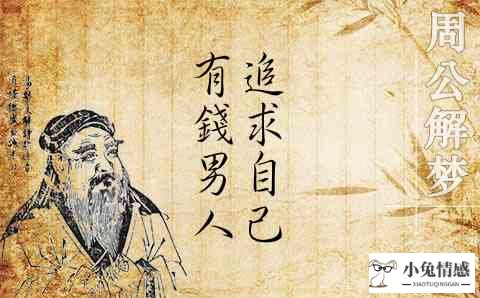 周公解梦
追求自己
有錢男人
小兔情感
XIAOTUQINGGAN